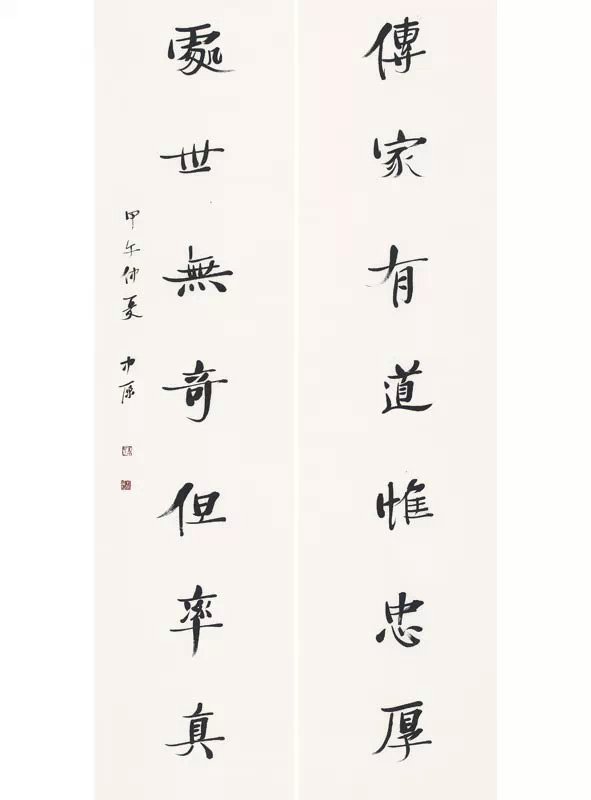 傳家有道惟忠厚
處世無奇但率真
甲午仲夏